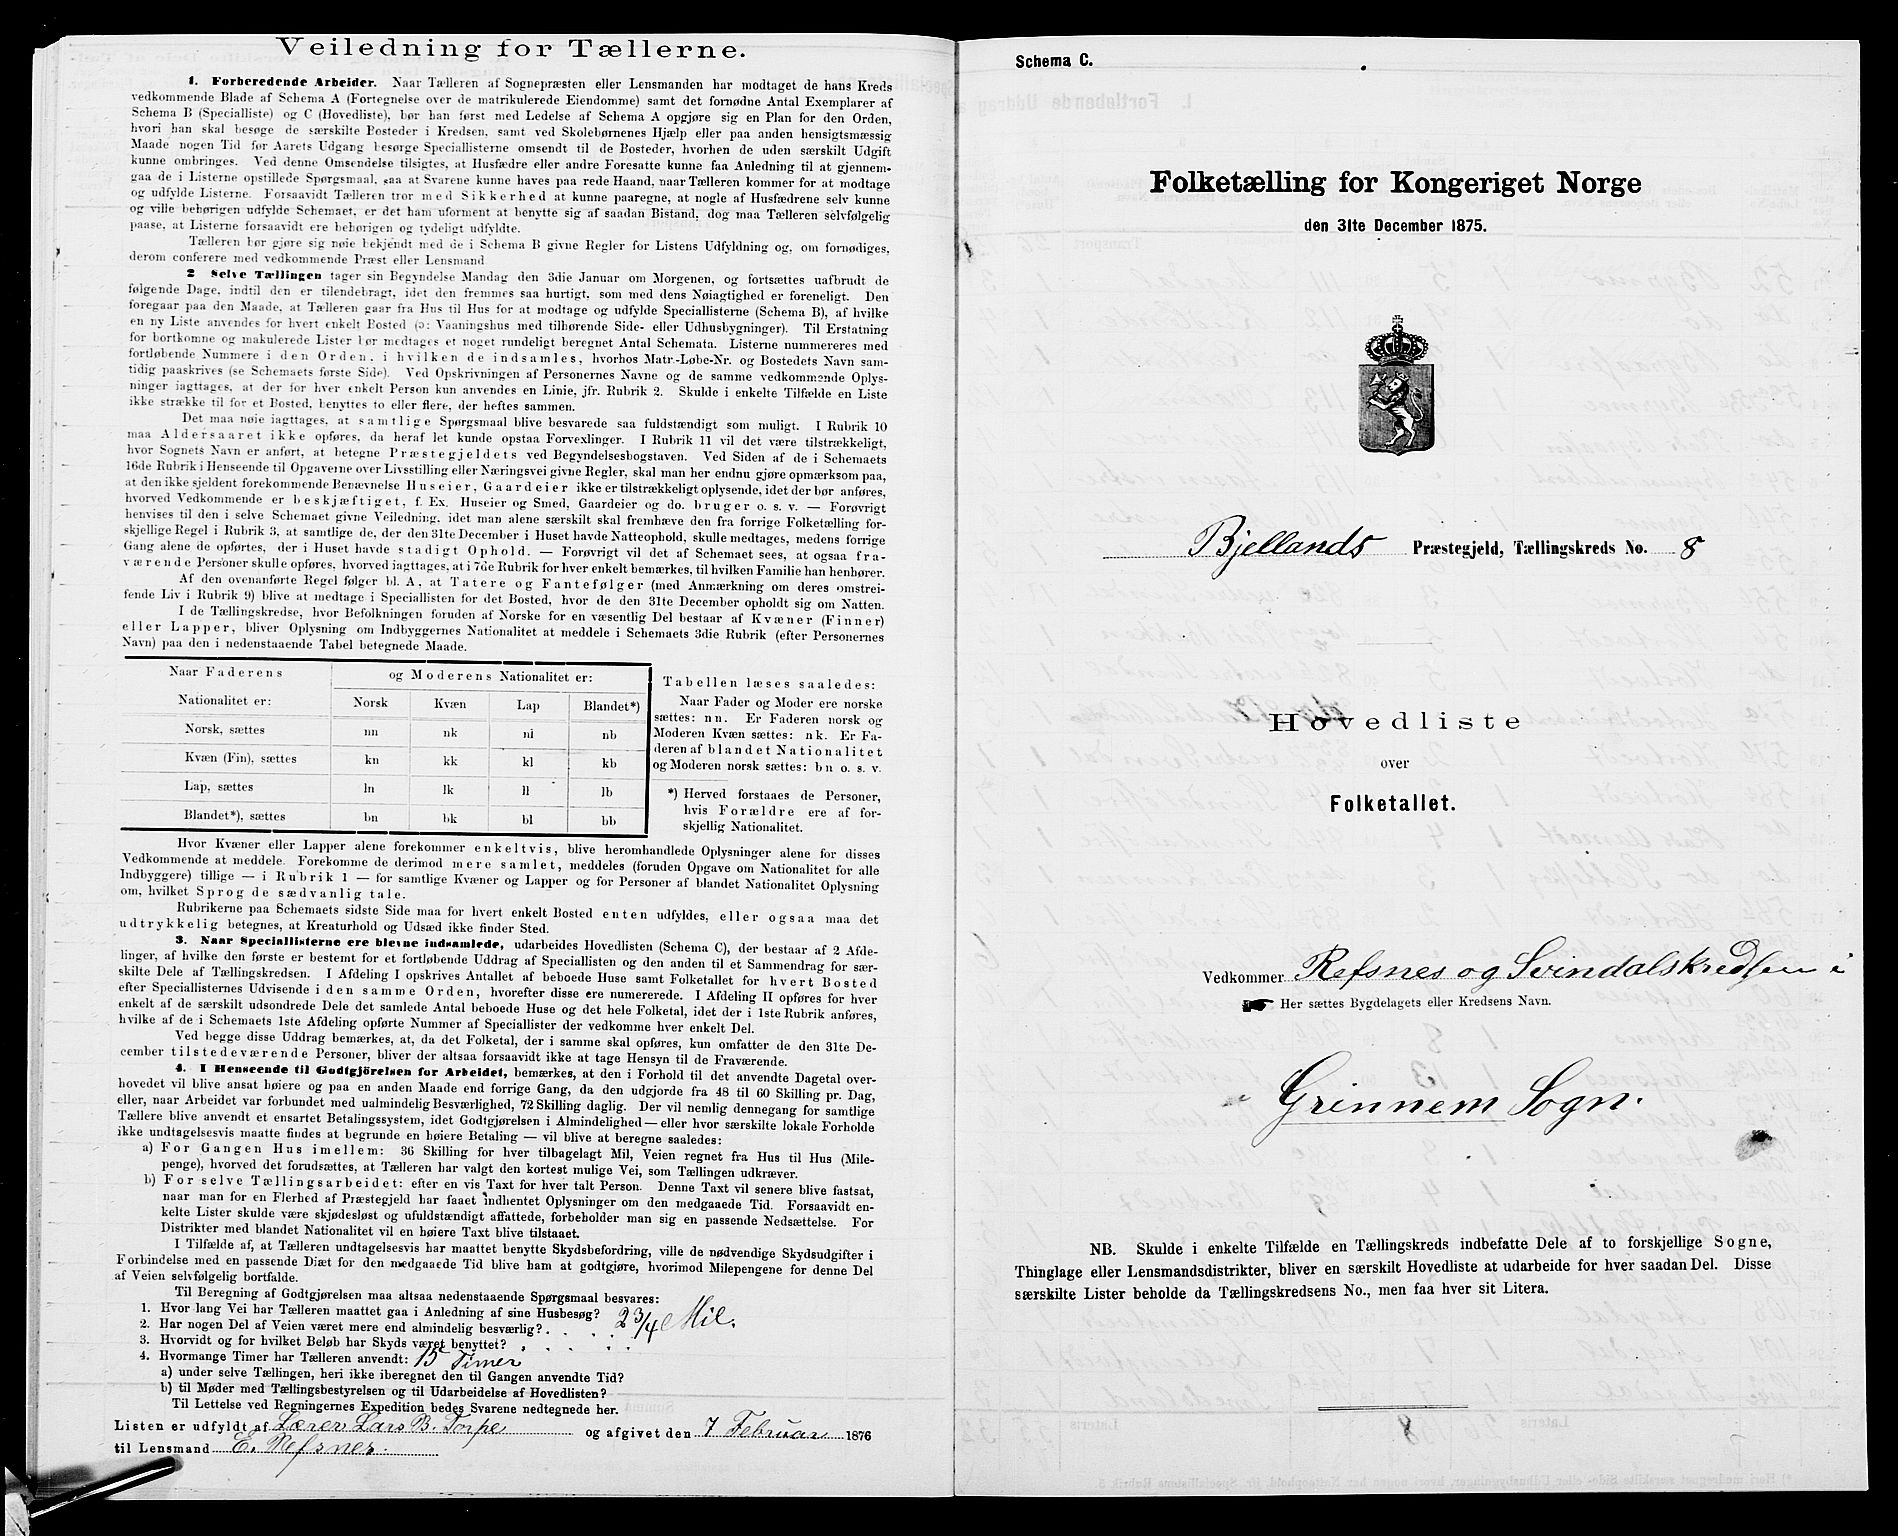 Veiledning for Tællerne.
1. Forberedende Arbeider. Naar Tælleren af Sognepræsten eller Lensmanden har modtaget de hans Kreds
vedkommende Blade af Schema A (Fortegnelse over de matrikulerede Eiendomme) samt det fornødne Antal Exemplarer af
Schema B (Specialliste) og C (Hovedliste), bør han først med Ledelse af Schema A opgjøre sig en Plan for den Orden,
hvori han skal besøge de særskilte Bosteder i Kredsen, samt ved Skolebørnenes Hjælp eller paa anden hensigtsmæssig
Maade nogen Tid før Aarets Udgang besørge Speciallisterne omsendt til de Bosteder, hvorhen de uden særskilt Udgift
kunne ombringes. Ved denne Omsendelse tilsigtes, at Husfædre eller andre Foresatte kunne faa Anledning til at gjennem-
gaa de i Listerne opstillede Spørgsmaal, saa at Svarene kunne haves paa rede Haand, naar Tælleren kommer for at modtage
og udfylde Listerne. Forsaavidt Tælleren tror med Sikkerhed at kunne paaregne, at nogle af Husfædrene selv kunne
og ville behørigen udfylde Schemaet, er det ham uforment at benytte sig af saadan Bistand, dog maa Tælleren selvfølgelig
paase, at Listerne forsaavidt ere behørigen og tydeligt udfyldte.
Tælleren bør gjøre sig nøie bekjendt med de i Schema B givne Regler for Listens Udfyldning og, om fornødiges,
derom conferere med vedkommende Præst eller Lensmand
2 Selve Tællingen tager sin Begyndelse Mandag den 3die Januar om Morgenen, og fortsættes uafbrudt de
følgende Dage, indtil den er tilendebragt, idet den fremmes saa hurtigt, som med dens Nøiagtighed er foreneligt. Den
foregaar paa den Maade, at Tælleren gaar fra Hus til Hus for at modtage og udfylde Speciallisterne (Schema B), af hvilke
en ny Liste anvendes for hvert enkelt Bosted (ɔ: Vaaningshus med tilhørende Side- eller Udhusbygninger). Til Erstatning
for bortkomne og makulerede Lister bør medtages et noget rundeligt beregnet Antal Schemata. Listerne nummereres med
fortløbende Nummere i den Orden, i hvilken de indsamles, hvorhos Matr.-Løbe-Nr. og Bostedets Navn sam-
tidig paaskrives (se Schemaets første Side). Ved Opskrivningen af Personernes Navne og de samme vedkommende Oplys-
ninger iagttages, at der for hver enkelt Person kun anvendes en Linie, jfr. Rubrik 2. Skulde i enkelte Tilfælde en Liste
ikke strække til for et Bosted, benyttes to eller flere, der heftes sammen.
Det maa nøie iagttages, at samtlige Spørgsmaal blive besvarede saa fuldstændigt som muligt. I Rubrik 10
maa Aldersaaret ikke opføres, da heraf let kunde opstaa Forvexlinger. I Rubrik 11 vil det være tilstrækkeligt,
hvor Sognets Navn er anført, at betegne Præstegjeldets ved Begyndelsesbogstaven. Ved Siden af de i Schemaets
16de Rubrik i Henseende til Opgaverne over Livsstilling eller Næringsvei givne Regler, skal man her endnu gjøre opmærksom paa,
at den ikke sjeldent forekommende Benævnelse Huseier, Gaardeier ikke er tilstrækkeligt oplysende, idet der bør anføres,
hvorved Vedkommende er beskjæftiget, f. Ex. Huseier og Smed, Gaardeier og do. bruger o. s. v. — Forøvrigt
henvises til den i selve Schemaet givne Veiledning, idet man alene særskilt skal fremhæve den fra forrige Folketælling for-
skjellige Regel i Rubrik 3, at samtlige de, der den 31te December i Huset havde Natteophold, skulle medtages, medens forrige
Gang alene de opførtes, der i Huset havde stadigt Ophold. — Forøvrigt vil det af Schemaet sees, at ogsaa fra-
værende Personer skulle opføres, hvorved iagttages, at i 7de Rubrik for hver enkelt bemærkes, til hvilken Familie han henhører.
Af den ovenanførte Regel følger bl. A. at Tatere og Fantefølger (med Anmærkning om deres omstrei-
fende Liv i Rubrik 9) blive at medtage i Speciallisten for det Bosted, hvor de den 31te December opholdt sig om Natten.
I de Tællingskredse, hvor Befolkningen foruden af Norske for en væsentlig Del bestaar af Kvæner (Finner)
eller Lapper, bliver Oplysning om Indbyggernes Nationalitet at meddele i Schemaets 3die Rubrik (efter Personernes
Navn) paa den i nedenstaaende Tabel betegnede Maade.
Naar Faderens
Nationalitet er:
og Moderens Nationalitet er:
Norsk Kvæn Lap Blandet*)
Norsk, sættes nn nk nl nb
Kvæn (Fin), sættes kn kk kl kb
Lap, sættes ln lk ll lb
Blandet*), sættes bn bk bl bb
Tabellen læses saaledes:
Naar Fader og Moder ere norske
sættes: nn. Er Faderen norsk og
Moderen Kvæn sættes: nk. Er Fa-
deren af blandet Nationalitet
og Moderen norsk sættes: bn o. s. v.
*) Herved forstaaes de Personer,
hvis Forældre ere af for-
skjellig Nationalitet.
Hvor Kvæner eller Lapper alene forekommer enkeltvis, blive heromhandlede Oplysninger alene for disses
Vedkommende at meddele. Forekomme de derimod mere samlet, meddeles (foruden Opgave om Nationalitet for alle
Indbyggere) tillige — i Rubrik 1 — for samtlige Kvæner og Lapper og for Personer af blandet Nationalitet Oplysning
om, hvilket Sprog de sædvanlig tale.
Rubrikerne paa Schemaets sidste Side maa for hvert enkelt Bosted enten udfyldes, eller ogsaa maa det
udtrykkelig betegnes, at Kreaturhold og Udsæd ikke finder Sted.
3. Naar Speciallisterne ere blevne indsamlede, udarbeides Hovedlisten (Schema C), der bestaar af 2 Afde-
linger, af hvilke den første er bestemt for et fortløbende Uddrag af Speciallisten og den anden til et Sammendrag for sær-
skilte Dele af Tællingskredsen. I Afdeling I opskrives Antallet af beboede Huse samt Folketallet for hvert Bosted
efter Speciallisternes Udvisende i den samme Orden, hvorefter disse ere numererede. I Afdeling II opføres for hver
enkelt af de særskilt udsondrede Dele det samlede Antal beboede Huse og det hele Folketal, idet der i 1ste Rubrik anføres,
hvilke af de i Schemaets 1ste Afdeling opførte Nummer af Speciallister der vedkomme hver enkelt Del.
Ved begge disse Uddrag bemærkes, at, da det Folketal, der i samme skal opføres, kun omfatter de den 31te De-
cember tilstedeværende Personer, bliver der altsaa forsaavidt ikke at tage Hensyn til de Fraværende.
4. I Henseende til Godtgjörelsen for Arbeidet, bemærkes, at den i Forhold til det anvendte Dagetal over-
hovedet vil blive ansat høiere og paa en anden Maade end forrige Gang, da den udgjorde fra 48 til 60 Skilling pr. Dag,
eller, naar Arbeidet var forbundet med ualmindelig Besværlighed, 72 Skilling daglig. Der vil nemlig dennegang for samtlige
Tællere blive anvendt et ensartet Betalingssystem, idet Godtgjørelsen i Almindelighed — eller hvor særskilte lokale Forholde
ikke undtagelsesvis maatte findes at begrunde en høiere Betaling — vil blive at beregne saaledes:
a) For Gangen Hus imellem: 36 Skilling for hver tilbagelagt Mil, Veien regnet fra Hus til Hus (Mile-
penge), hvorved det forudsættes, at Tælleren har valgt den kortest mulige Vei, som Tællingen udkræver.
b) For selve Tællingsarbeidet: efter en vis Taxt for hver talt Person. Denne Taxt vil senere blive fastsat,
naar man for en Flerhed af Præstegjeld har faaet indhentet Oplysninger om den medgaaede Tid. Forsaavidt en-
kelte Lister skulde være skjødesløst og ufuldstændigt affattede, forbeholder man sig en passende Nedsættelse. For
Distrikter med blandet Nationalitet vil en høiere Taxt blive tilstaaet.
I Tilfælde af, at Tælleren undtagelsesvis har maattet benytte Skydsbefordring, ville de nødvendige Skydsudgifter i
Forbindelse med en passende Diæt for den medgaaede Tid blive ham at godtgjøre, hvorimod Milepengene for denne Del
af Veien selvfølgelig bortfalde.
Til Beregning af Godtgjørelsen maa altsaa nedenstaaende Spørgsmaal besvares:
1. Hvor lang Vei har Tælleren maattet gaa i Anledning af sine Husbesøg? 2 3/4 Mil.
2. Har nogen Del af Veien været mere end almindelig besværlig?
3. Hvorvidt og for hvilket Beløb har Skyds været benyttet?
4. Hvormange Timer har Tælleren anvendt: 15 Timer
a) under selve Tællingen, heri ikke iberegnet den til Gangen anvendte Tid?
b) til Møder med Tællingsbestyrelsen og til Udarbeidelse af Hovedlisten?
Til Lettelse ved Regningernes Expedition bedes Svarene nedtegnede her.
Listen er udfyldt af Lærer Lars B. Torpe og afgivet den 7 Februar 1876
til Lensmand E. Refsnes.
Schema C.
Folketælling for Kongeriget Norge
den 31te December 1875.
Bjellands Præstegjeld, Tællingskreds No. 8
Hovedliste
over
Folketallet.
Vedkommer Refsnes og Svindalskredsen i
Her sættes Bygdelagets eller Kredsens Navn.
Grinnem Sogn.
NB. Skulde i enkelte Tilfælde en Tællingskreds indbefatte Dele af to forskjellige Sogne,
Thinglage eller Lensmandsdistrikter, bliver en særskilt Hovedliste at udarbeide for hver saadan Del. Disse
særskilte Lister beholde da Tællingskredsens No., men faa hver sit Litera.